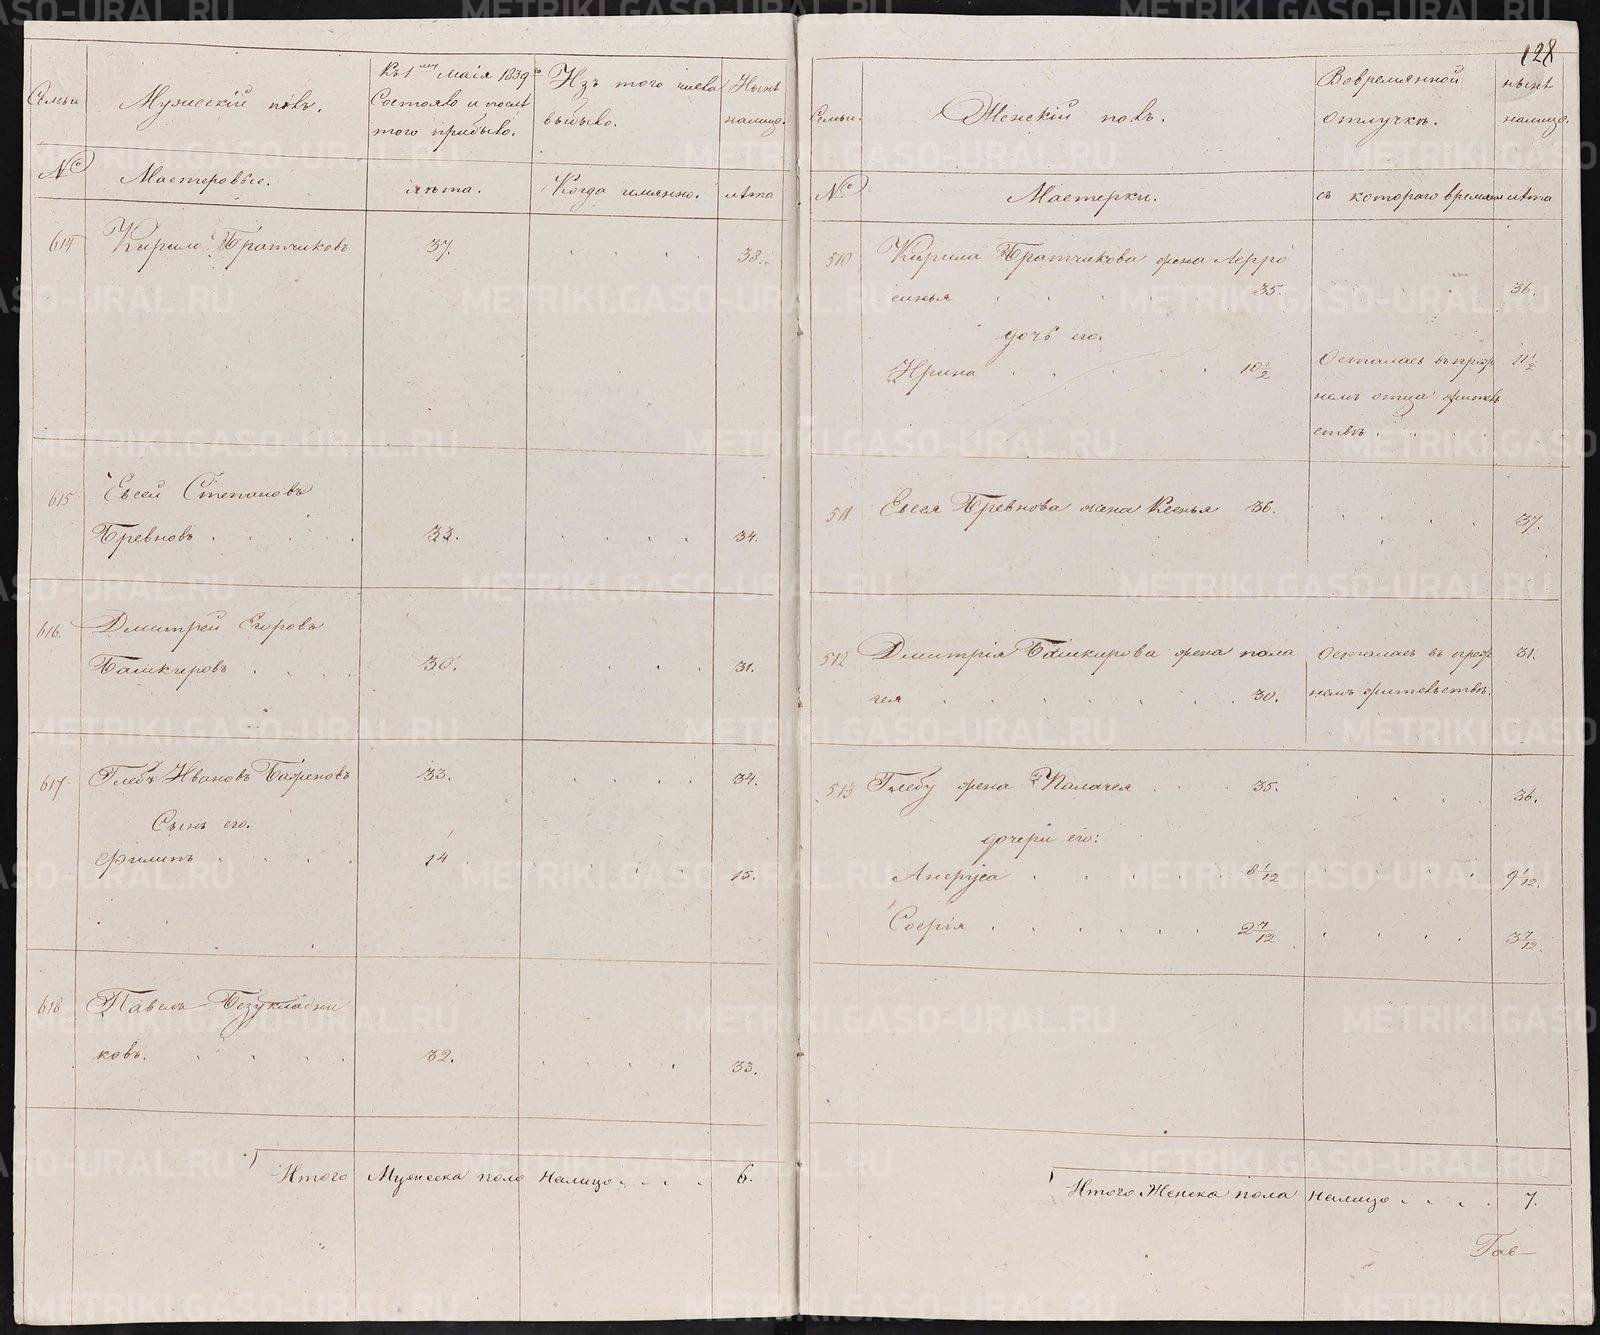 Семьи
Мужескій полъ.
Къ 1му Маія 1839го
Состояло и послѣ
того прибыло.
Изъ того числа
выбыло.
Нынѣ
налицо.
№
Мастеровые.
лѣта.
Когда имянно.
лѣта
614
Кирило Братчиковъ
37.
38.
615
Евсей Степановъ
Бревновъ
33.
34.
616.
Дмитрей Егоровъ
Башкировъ
30.
31.
617
Глебъ Ивановъ Баженовъ
33.
34.
Сынъ его.
Филипъ
14
15.
618
Павелъ Безукладни
ковъ.
32.
33.
Итого Мужеска пола налицо
6.
128
Семьи.
Женскій полъ.
Вовремянной
отлучкѣ.
нынѣ
налицо.
№
Мастерки.
съ котораго времяни
лѣта
510
Кирила Братчикова жена Афро
синья
35.
36.
дочь его.
Ирина
10 1/2
Осталась въ преж
11 1/2
немъ отца житель
ствѣ
511
Евсея Бревнова жена Ксенья
36.
37.
512
Дмитрія Башкирова жена пала
гея
30.
Осталась въ преж
31.
немъ жительствѣ.
513
Глебу жена Палагея
35.
36.
дочери его:
Анфуса
8 1/12
9 1/12.
Софія
2 7/12
3 7/12.
Итого Женска пола налицо
7.
METRIKI.GASO-URAL.RU